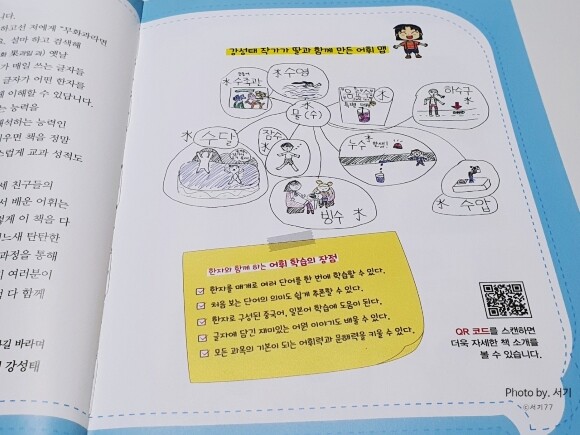 니다.
하고선 저에게 "무화과라면
, 설마 하고 검색해
옛날
가 매일 쓰는 글자들
글자가 어떤 한자를
게 이해할 수 있답니다.
는 능력을
해석하는 능력인
우면 책을 정말
스럽게 교과 성적도
세 친구들의
서 배운 어휘는
렇게 이 책을 다
느새 탄탄한
과정을 통해
여러분이
다 함께
길 바라며
강성태
강성태 작가가 딸과 함께 만든 어휘 맵
水 수영
水 수족관
물 (수)
水
하수구
水
水 수달
잠수
水
누수 水 발생!
水 수압
빙수 水
한자와 함께 하는 어휘 학습의 장점
한자를 매개로 여러 단어를 한 번에 학습할 수 있다.
처음 보는 단어의 의미도 쉽게 추론할 수 있다.
한자로 구성된 중국어, 일본어 학습에 도움이 된다.
글자에 담긴 재미있는 어원 이야기도 배울 수 있다.
모든 과목의 기본이 되는 어휘력과 문해력을 키울 수 있다.
QR 코드를 스캔하면
더욱 자세한 책 소개를
볼 수 있습니다.
Photo by. 서기
©서기77